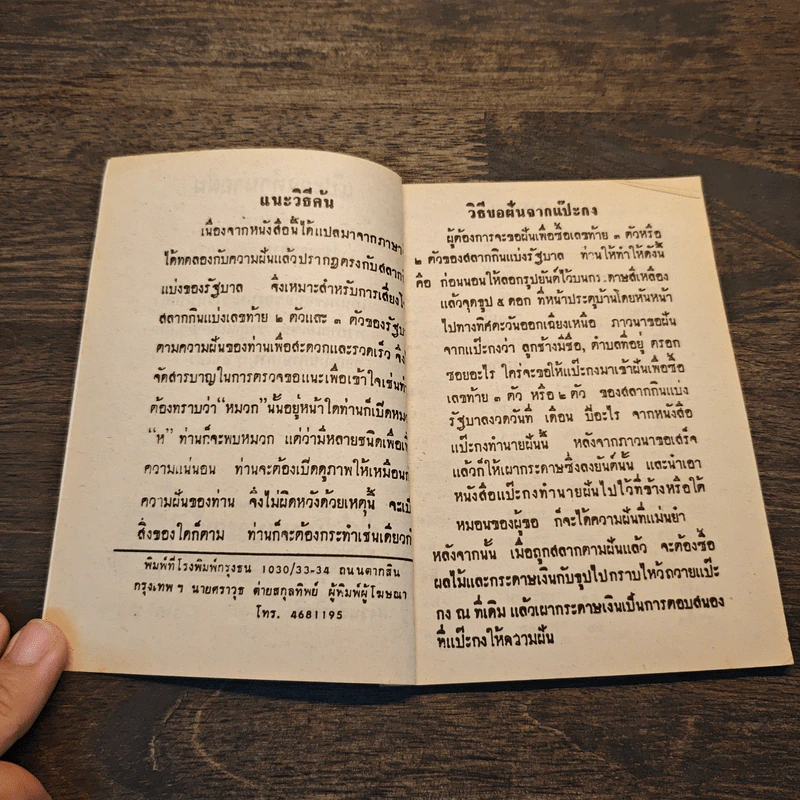 แนะวิธีค้น
เนื่องจากหนังสือนี้ได้แปลมาจากภาษา
ได้ทดลองกับความฝันแล้วปรากฏตรงกับสลากกิ
แบ่งของรัฐบาล จึ่งเหมาะสำหรับการเสี่ยงโ
สลากกินแบ่งเลขท้าย ๒ ตัวและ ๓ ตัวของรัฐบ
ตามความฝันของท่านเพื่อสะดวกและรวดเร็ว จึง
จัดสารบาญในการตรวจขอแนะเพื่อเข้าใจเช่นท่า
ต้องทราบว่า "หมวก" นั้นอยู่หน้าใดท่านก็เปิดหม
"ห" ท่านก็จะพบหมวก แต่ว่ามีหลายชนิดเพื่อเ
ความแน่นอน ท่านจะต้องเปิดดูภาพให้เหมือน
ความฝันของท่าน จึ่งไม่ผิดหวังด้วยเหตุนี้ จะเป็
สิ่งของใดก็ตาม ท่านก็จะต้องกระทำเช่นเดียวกั
พิมพ์ที่โรงพิมพ์กรุงธน 1030/33-34 ถนนตากสิน
กรุงเทพฯ นายศราวุธ ค่ายสกุลทิพย์ ผู้พิมพ์ผู้โฆษณา
โทร. 4681195
วิธีขอฝันจากแป๊ะกง
ผู้ต้องการจะขอฝันเพื่อซื้อเลขท้าย ๓ ตัวหรือ
๒ ตัวของสลากกินแบ่งรัฐบาล ท่านให้ทำให้ดังนี้
คือ ก่อนนอนให้ลอกรูปยันต์ไว้บนกระดาษสีเหลือง
แล้วจุดธูป ๕ ดอก ที่หน้าประตูบ้านโดยหันหน้า
ไปทางทิศตะวันออกเฉียงเหนือ ภาวนาขอฝัน
จากแป๊ะกงว่า ลูกช้างมีชื่อ, ตำบลที่อยู่ ตรอก
ซอยอะไร ใคร่จะขอให้แป๊ะกงมาเข้าฝันเพื่อซื้อ
เลขท้าย ๓ ตัว หรือ ๒ ตัว ของสลากกินแบ่ง
รัฐบาลงวดวันที่ เดือน ปีอะไร จากหนังสือ
แป๊ะกงทำนายฝันนี้ หลังจากภาวนาขอเสร็จ
แล้วก็ให้เผากระดาษซึ่งลงยันต์นั้น และนำเอา
หนังสือแป๊ะกงทำนายฝันไปไว้ที่ข้างหรือใต้
หมอนของผู้ขอ ก็จะได้ความฝันที่แม่นยำ
หลังจากนั้น เมื่อถูกสลากตามฝันแล้ว จะต้องซื้อ
ผลไม้และกระดาษเงินกับธูปไปกราบไหว้ถวายแป๊ะ
กง ณ ที่เดิม แล้วเผากระดาษเงินเป็นการตอบสนอง
ที่แป๊ะกงให้ความฝัน